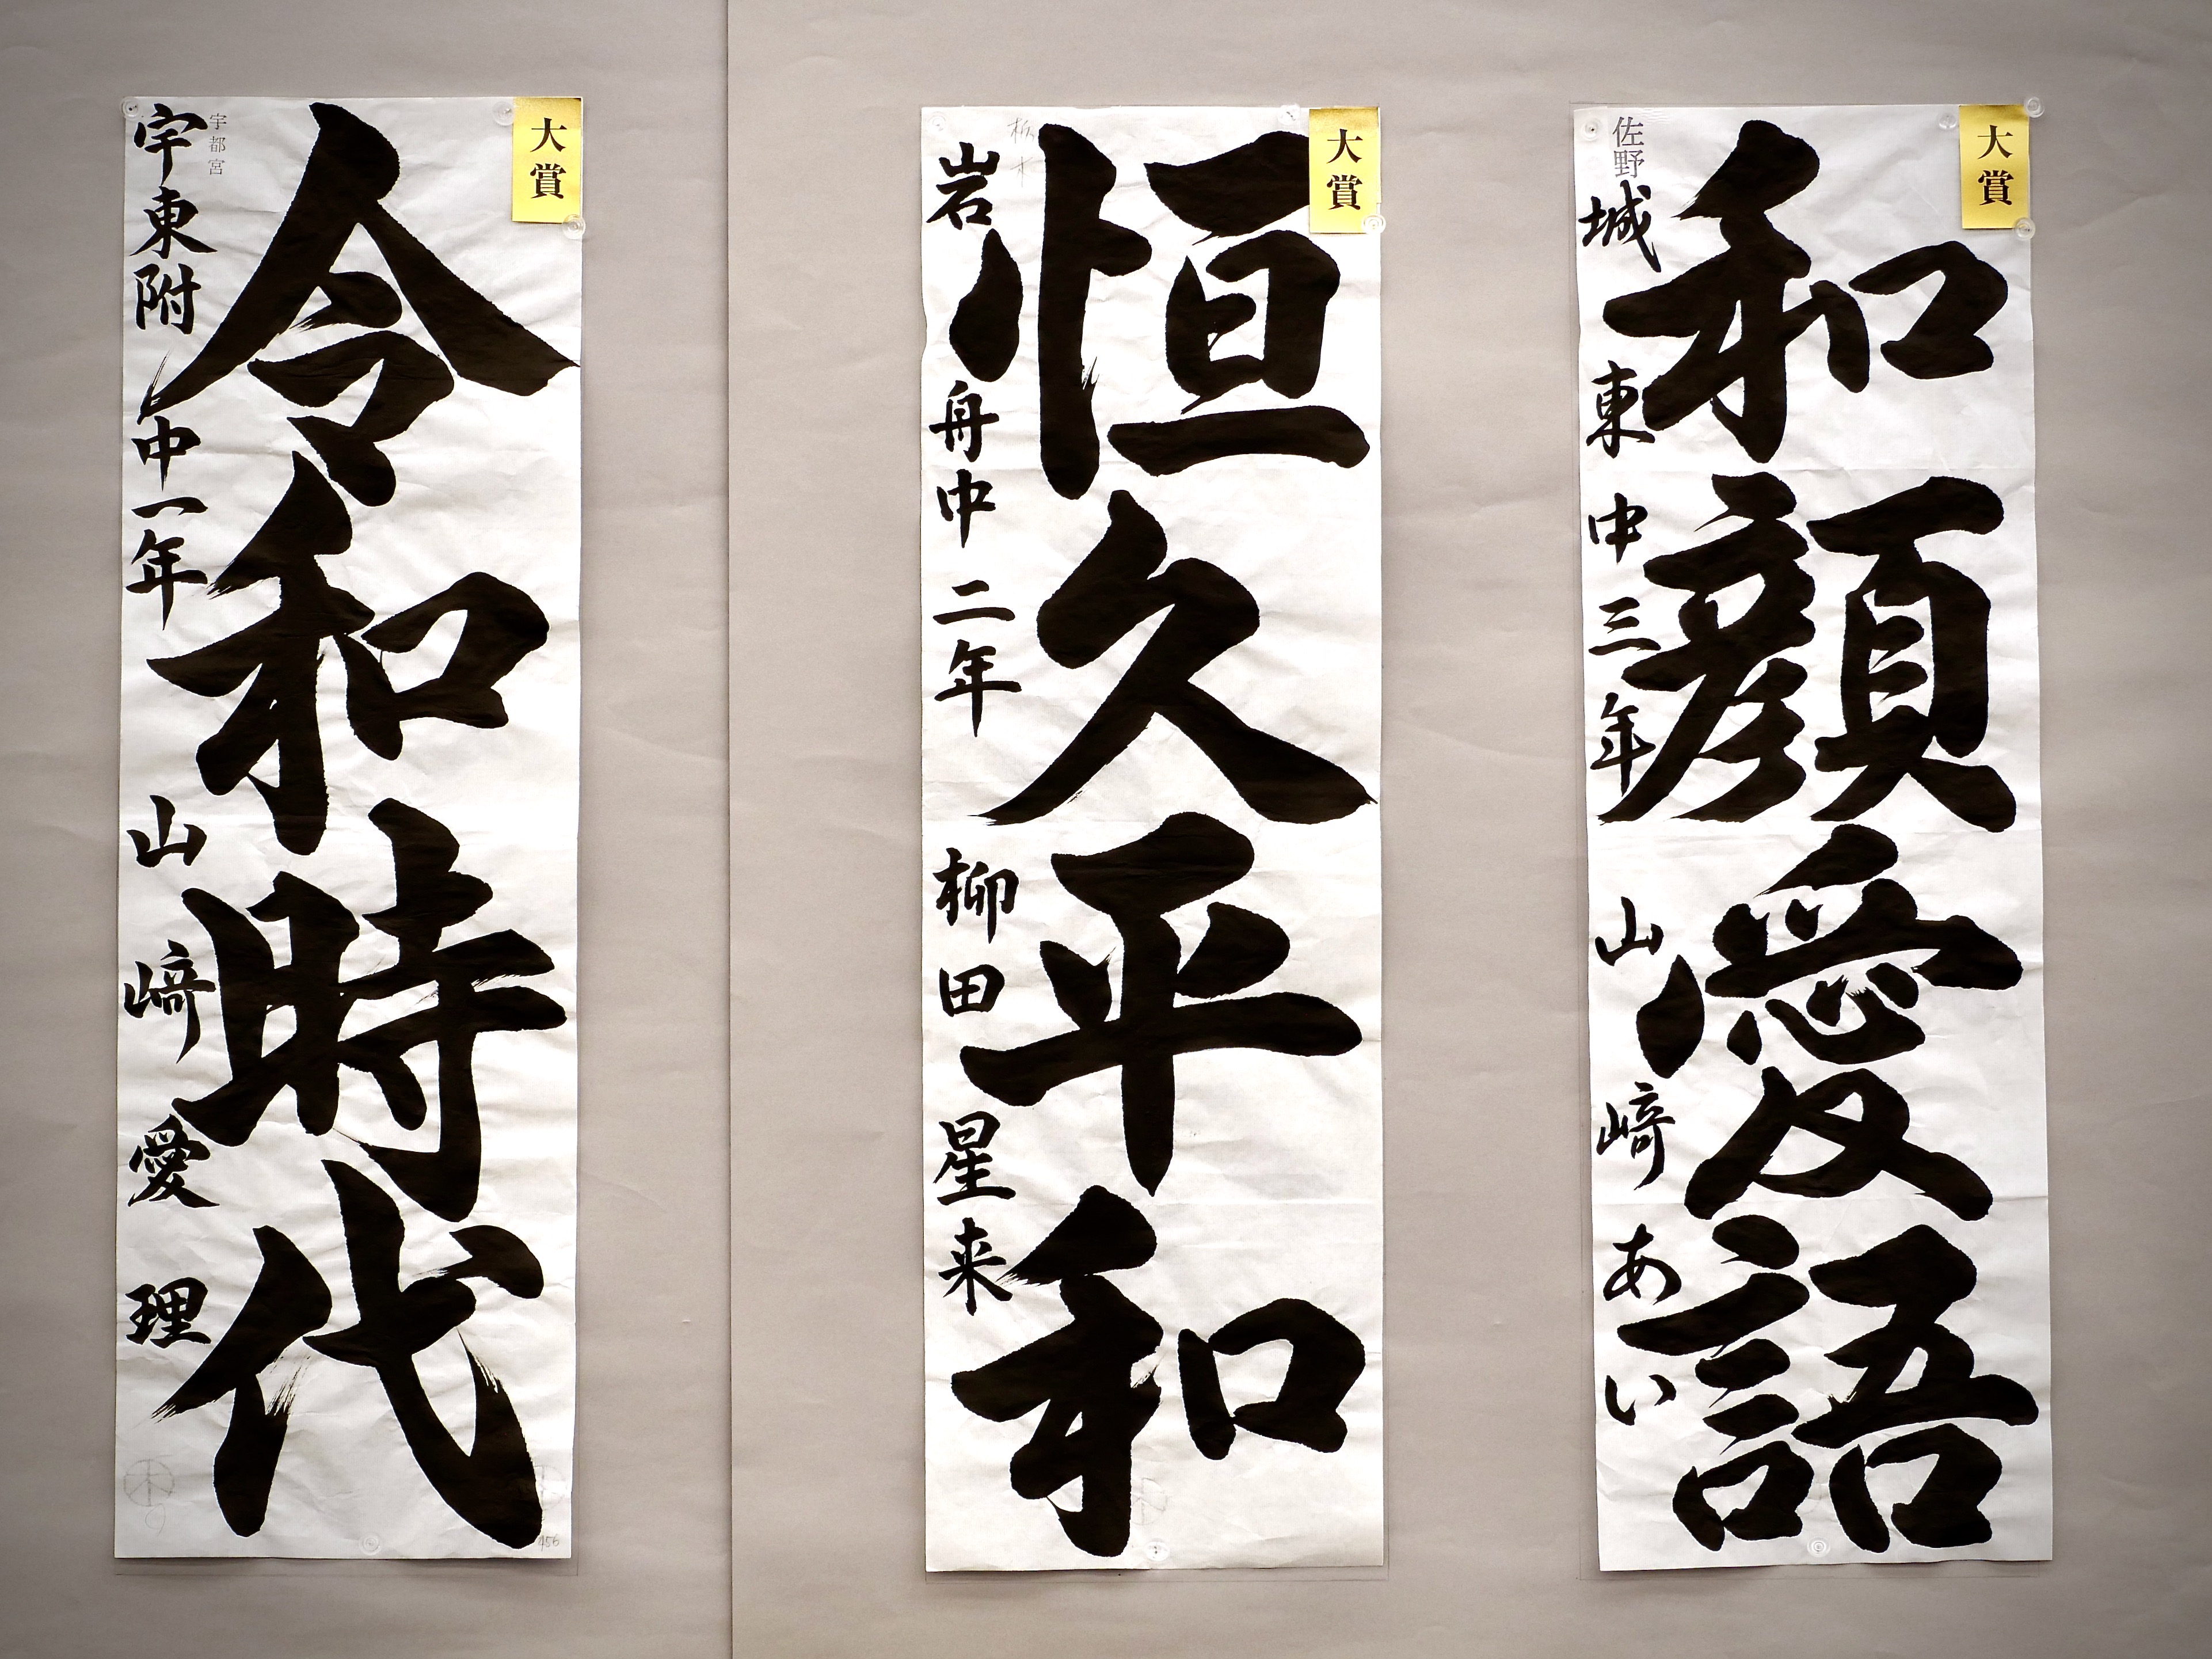 大賞
和顔愛語
佐野
城東中三年 山﨑あい
大賞
恒久平和
栃木
岩舟中二年 柳田星来
大賞
令和時代
宇都宮
宇東附中一年 山﨑愛理
456